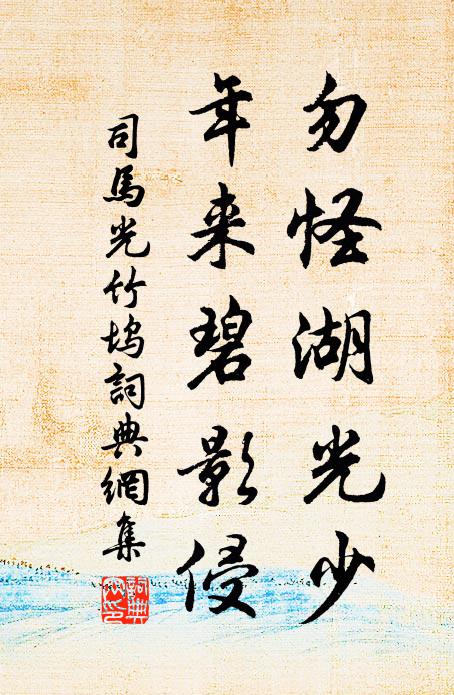 勿怪湖光少
年来碧影侵
司馬光竹塢詞典網集